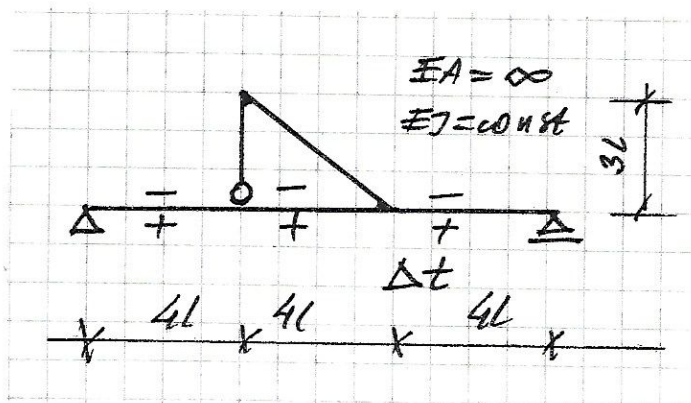 EA = ∞
EJ = const
3L
− − −
+ + +
Δt
4L 4L 4L